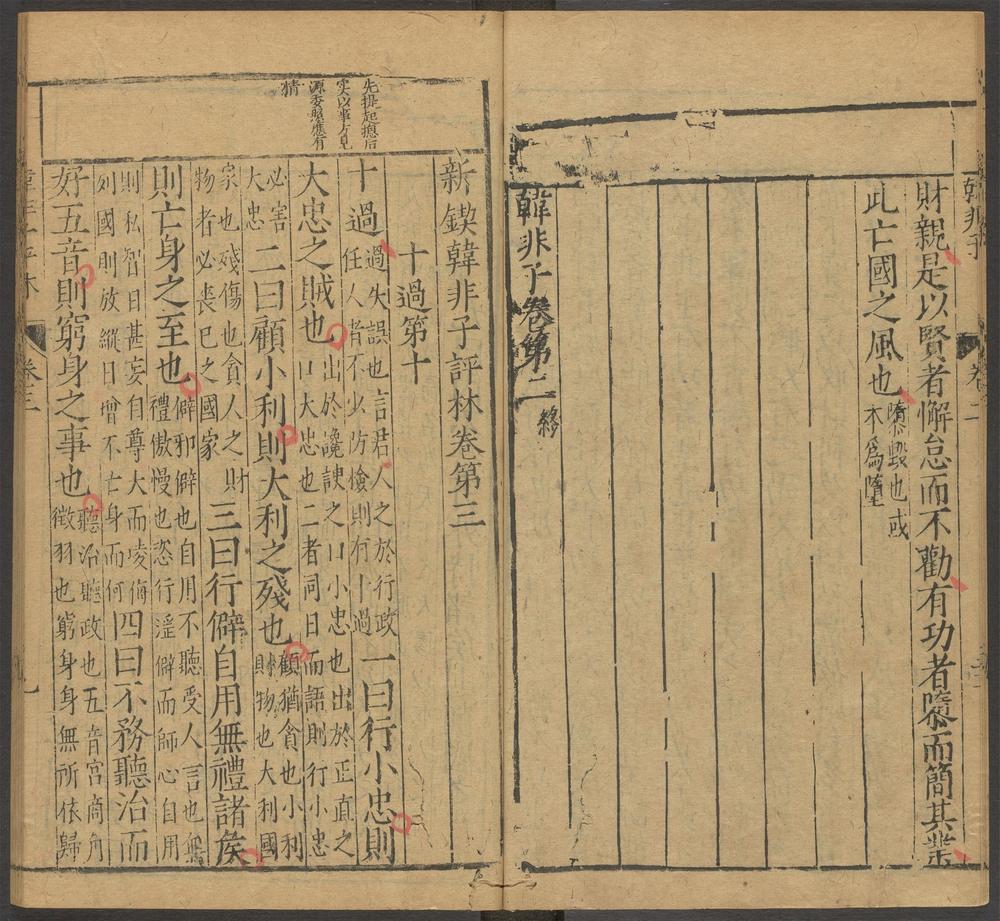 韓非子
卷二
財親是以賢者懈怠而不勸有功者隳而簡其業
此亡國之風也隳毀也或本爲墮
韓非子卷第二終
新鍥韓非子評林卷第三
十過第十
先提起摠后
实以事方見
源委照應有
情
十過過失誤也言君人之於行政任人者不少防儉則有十過一曰行小忠則
大忠之賊也出於讒諛之口小忠也出於正直之口大忠也二者同日而語則行小忠
必害大忠二曰顧小利則大利之殘也顧猶貪也小利財物也大利國
家也殘傷也貪人之財物者必喪已之國家三曰行僻自用無禮諸侯
則亡身之至也僻邪僻也自用不聽受人言也無禮傲慢也恣行淫僻而師心自用
則私智日甚妄自尊大而凌侮列國則放縱日增不亡身而何四曰不務聽治而
好五音則窮身之事也聽治聽政也五音宮商角徵羽也窮身身無所依歸
卷三